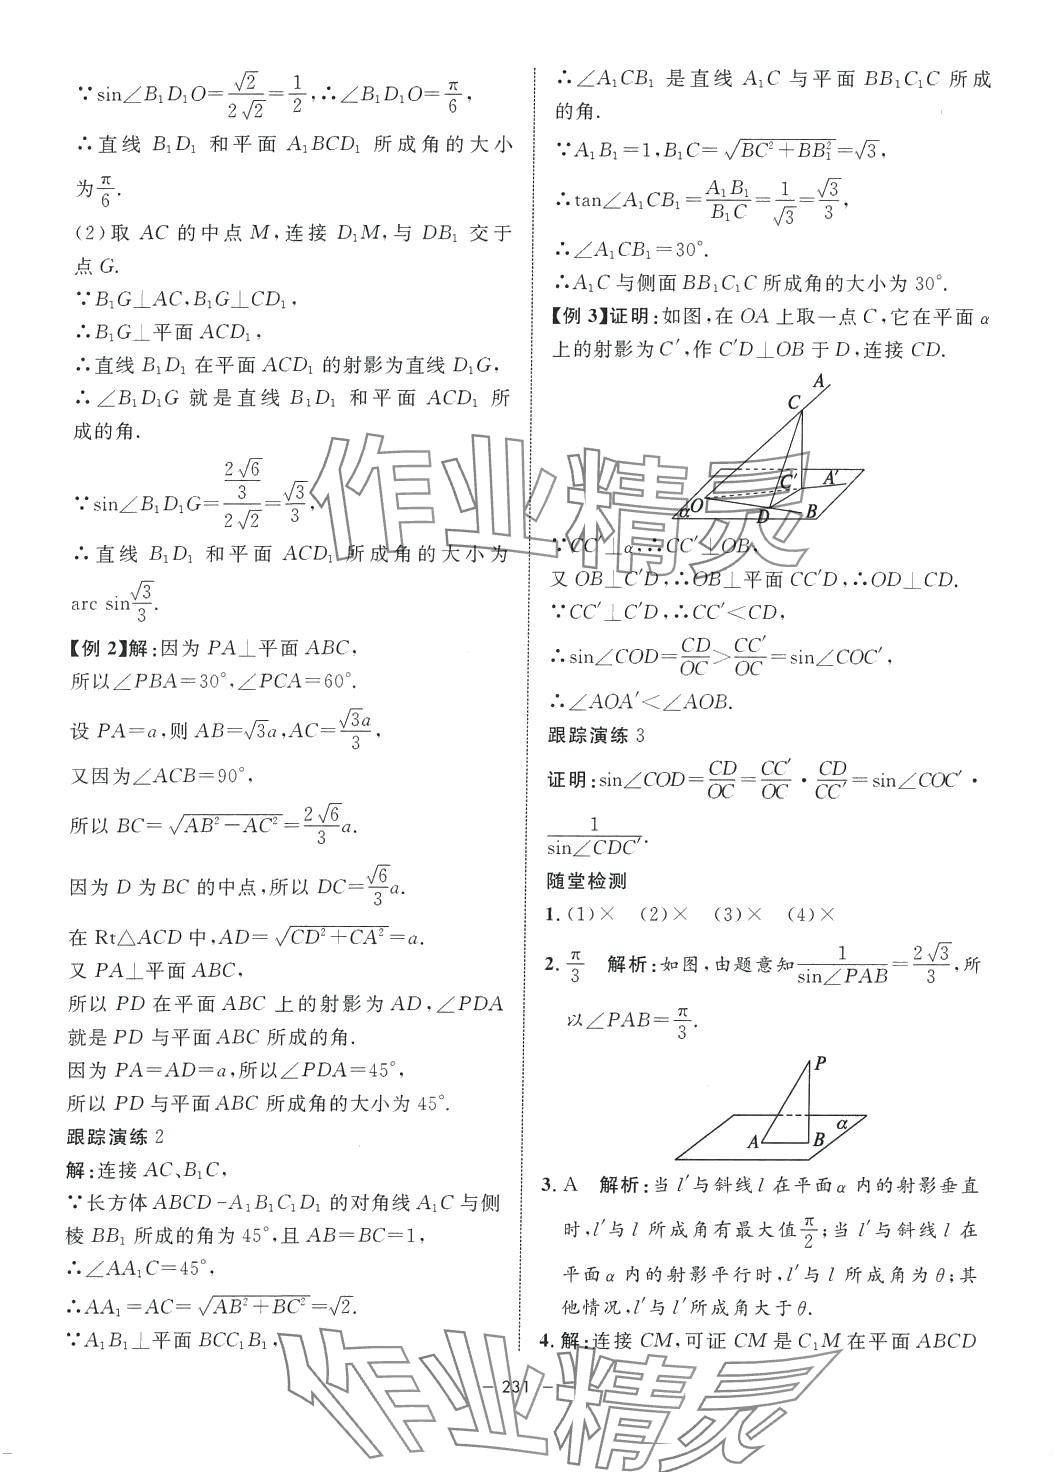 ∵sin∠B₁D₁O=√2/(2√2)=1/2,∴∠B₁D₁O=π/6,
∴直线 B₁D₁ 和平面 A₁BCD₁ 所成角的大小
为π/6.
(2)取 AC 的中点 M,连接 D₁M,与 DB₁ 交于
点G.
∵B₁G⊥AC,B₁G⊥CD₁,
∴B₁G⊥平面 ACD₁,
∴直线 B₁D₁ 在平面 ACD₁ 的射影为直线 D₁G,
∴∠B₁D₁G 就是直线 B₁D₁ 和平面 ACD₁ 所
成的角.
∵sin∠B₁D₁G=(2√6/3)/(2√2)=√3/3,
∴直线 B₁D₁ 和平面 ACD₁ 所成角的大小为
arc sin√3/3.
【例 2】解:因为 PA⊥平面 ABC,
所以∠PBA=30°,∠PCA=60°.
设 PA=a,则 AB=√3a,AC=√3a/3,
又因为∠ACB=90°,
所以 BC=√(AB²−AC²)=2√6/3a.
因为 D 为 BC 的中点,所以 DC=√6/3a.
在 Rt△ACD 中,AD=√(CD²+CA²)=a.
又 PA⊥平面 ABC,
所以 PD 在平面 ABC 上的射影为 AD,∠PDA
就是 PD 与平面 ABC 所成的角.
因为 PA=AD=a,所以∠PDA=45°,
所以 PD 与平面 ABC 所成角的大小为 45°.
跟踪演练 2
解:连接 AC、B₁C,
∵长方体 ABCD-A₁B₁C₁D₁ 的对角线 A₁C 与侧
棱 BB₁ 所成的角为 45°,且 AB=BC=1,
∴∠AA₁C=45°,
∴AA₁=AC=√(AB²+BC²)=√2.
∵A₁B₁⊥平面 BCC₁B₁,
∴∠A₁CB₁ 是直线 A₁C 与平面 BB₁C₁C 所成
的角.
∵A₁B₁=1,B₁C=√(BC²+BB₁²)=√3,
∴tan∠A₁CB₁=A₁B₁/B₁C=1/√3=√3/3,
∴∠A₁CB₁=30°.
∴A₁C 与侧面 BB₁C₁C 所成角的大小为 30°.
【例 3】证明:如图,在 OA 上取一点 C,它在平面 α
上的射影为 C′,作 C′D⊥OB 于 D,连接 CD.
A
C
C′
A′
O
α
D
B
∵CC′⊥α,∴CC′⊥OB,
又 OB⊥C′D,∴OB⊥平面 CC′D,∴OD⊥CD.
∵CC′⊥C′D,∴CC′<CD,
∴sin∠COD=CD/OC>CC′/OC=sin∠COC′,
∴∠AOA′<∠AOB.
跟踪演练 3
证明:sin∠COD=CD/OC=CC′/OC·CD/CC′=sin∠COC′·
1/sin∠CDC′.
随堂检测
1.(1)× (2)× (3)× (4)×
2.π/3 解析:如图,由题意知1/sin∠PAB=2√3/3,所
以∠PAB=π/3.
P
A
B
α
3.A 解析:当 l′与斜线 l 在平面 α 内的射影垂直
时,l′与 l 所成角有最大值π/2;当 l′与斜线 l 在
平面 α 内的射影平行时,l′与 l 所成角为 θ;其
他情况,l′与 l′所成角大于 θ.
4.解:连接 CM,可证 CM 是 C₁M 在平面 ABCD
− 231 −
作业精灵
作业精灵